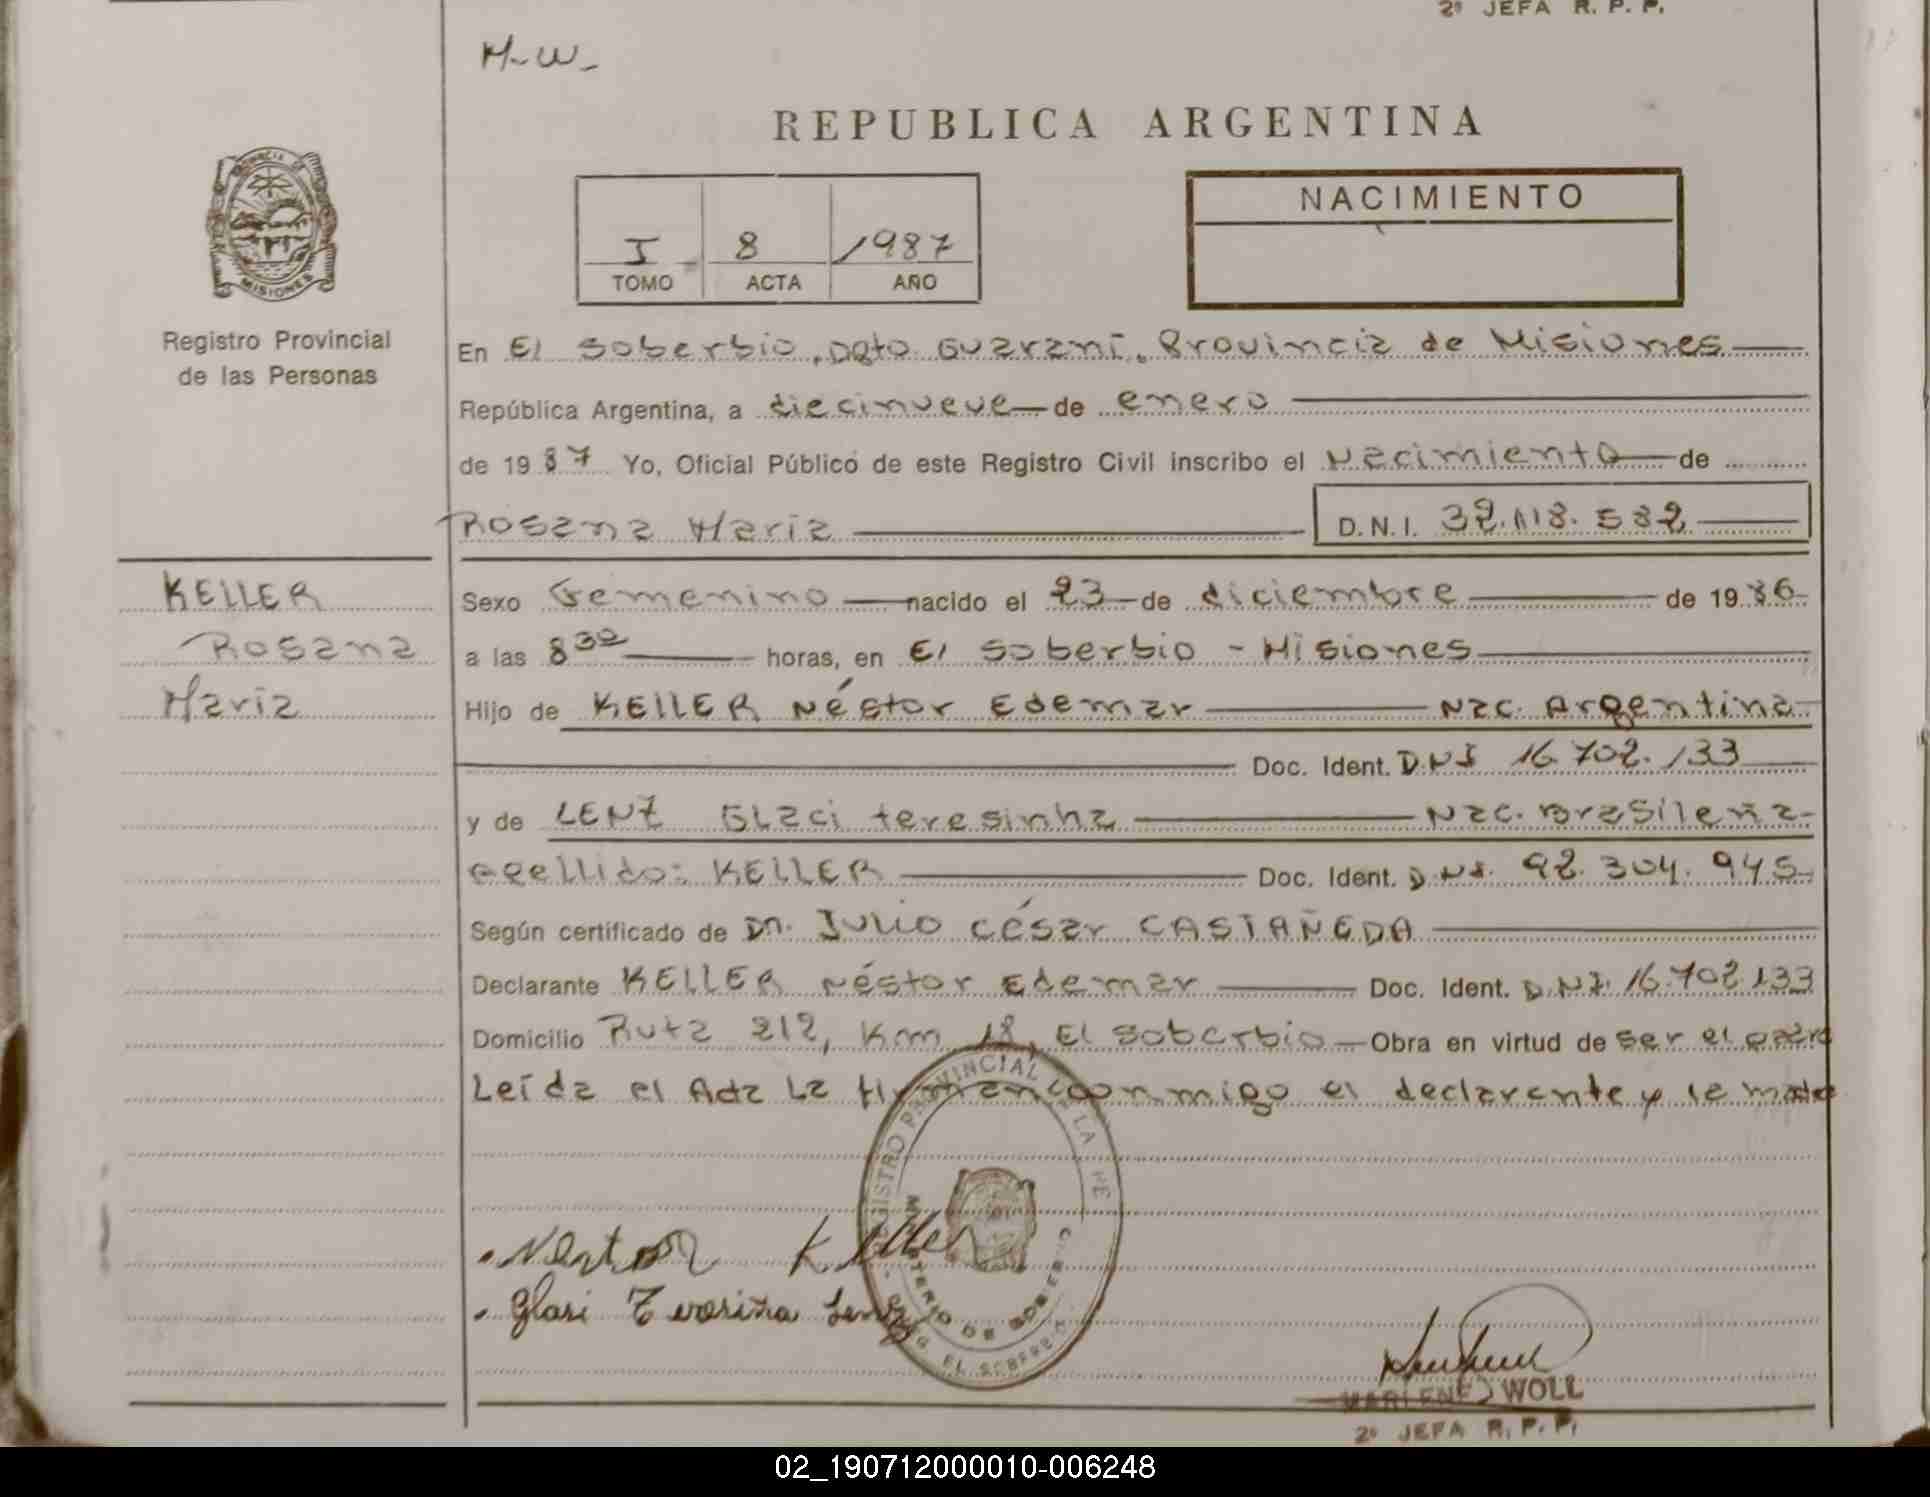 2º JEFA R. P. P.
H-W-
REPUBLICA ARGENTINA
NACIMIENTO
I 8 1987
TOMO ACTA AÑO
MISIONES
Registro Provincial
de las Personas
En El Soberbio, Dpto Guaraní. Provincia de Misiones
República Argentina, a diecinueve de enero
de 1987 Yo, Oficial Público de este Registro Civil inscribo el Nacimiento de
Rosana Maria D.N.I. 32.118.582
KELLER
Rosana
Maria
Sexo Femenino nacido el 23 de diciembre de 1986
a las 8 30 horas, en El Soberbio - Misiones
Hijo de KELLER Néstor Edemar Nac. Argentina
Doc. Ident. D.N.I 16.702.133
y de LENZ Glaci teresinha Nac. Brasileña
apellido: KELLER Doc. Ident. D.N.I. 92.304.945
Según certificado de Dn. Julio César CASTAÑEDA
Declarante KELLER Néstor Edemar Doc. Ident. D.N.I. 16.702.133
Domicilio Ruta 212, Km 18, El Soberbio Obra en virtud de ser el padre
Leída el Acta La firman conmigo el declarante y la madre
REGISTRO PROVINCIAL DE LA PE
MINISTERIO DE GOBIERNO
EL SOBERBIO
Nestor Keller
Glasi Teresiña Lenz
MARLENE J WOLL
2º JEFA R. P. P.
02_190712000010-006248